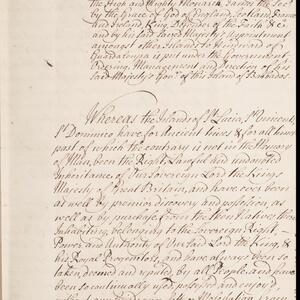 the High and Mighty Monarch James the Second
by the Grace of God of England, Scotland, France
and Ireland, King, Defender of the Faith, &c. a
and by his said Sacred Majesty's Appointment
amongst other Islands to Windward of
Guardaloupa is put under the Government,
Ordering, Management and direction of his
said Majesty's Gov.r of this Island of Barbados.
Whereas the Islands of St Lucia, St Vincent,
St Dominico have for Ancient times & for all times
past of which the contrary is not in the Memory
of Man, been the Right, Lawful and undoubted
Inheritance of Our Sovereign Lord the King's
Majesty of Great Britain, and have ever been
as well by premier discovery and possession, as
well as by purchase from the then Natives then
Inhabiting, belonging to the Sovereign Right,
Power and Authority of Our said Lord the King, &
his Royal Progenitors, and have always been so
taken, deemed and reputed by all People, and have
been so continually used, possessed and enjoyed